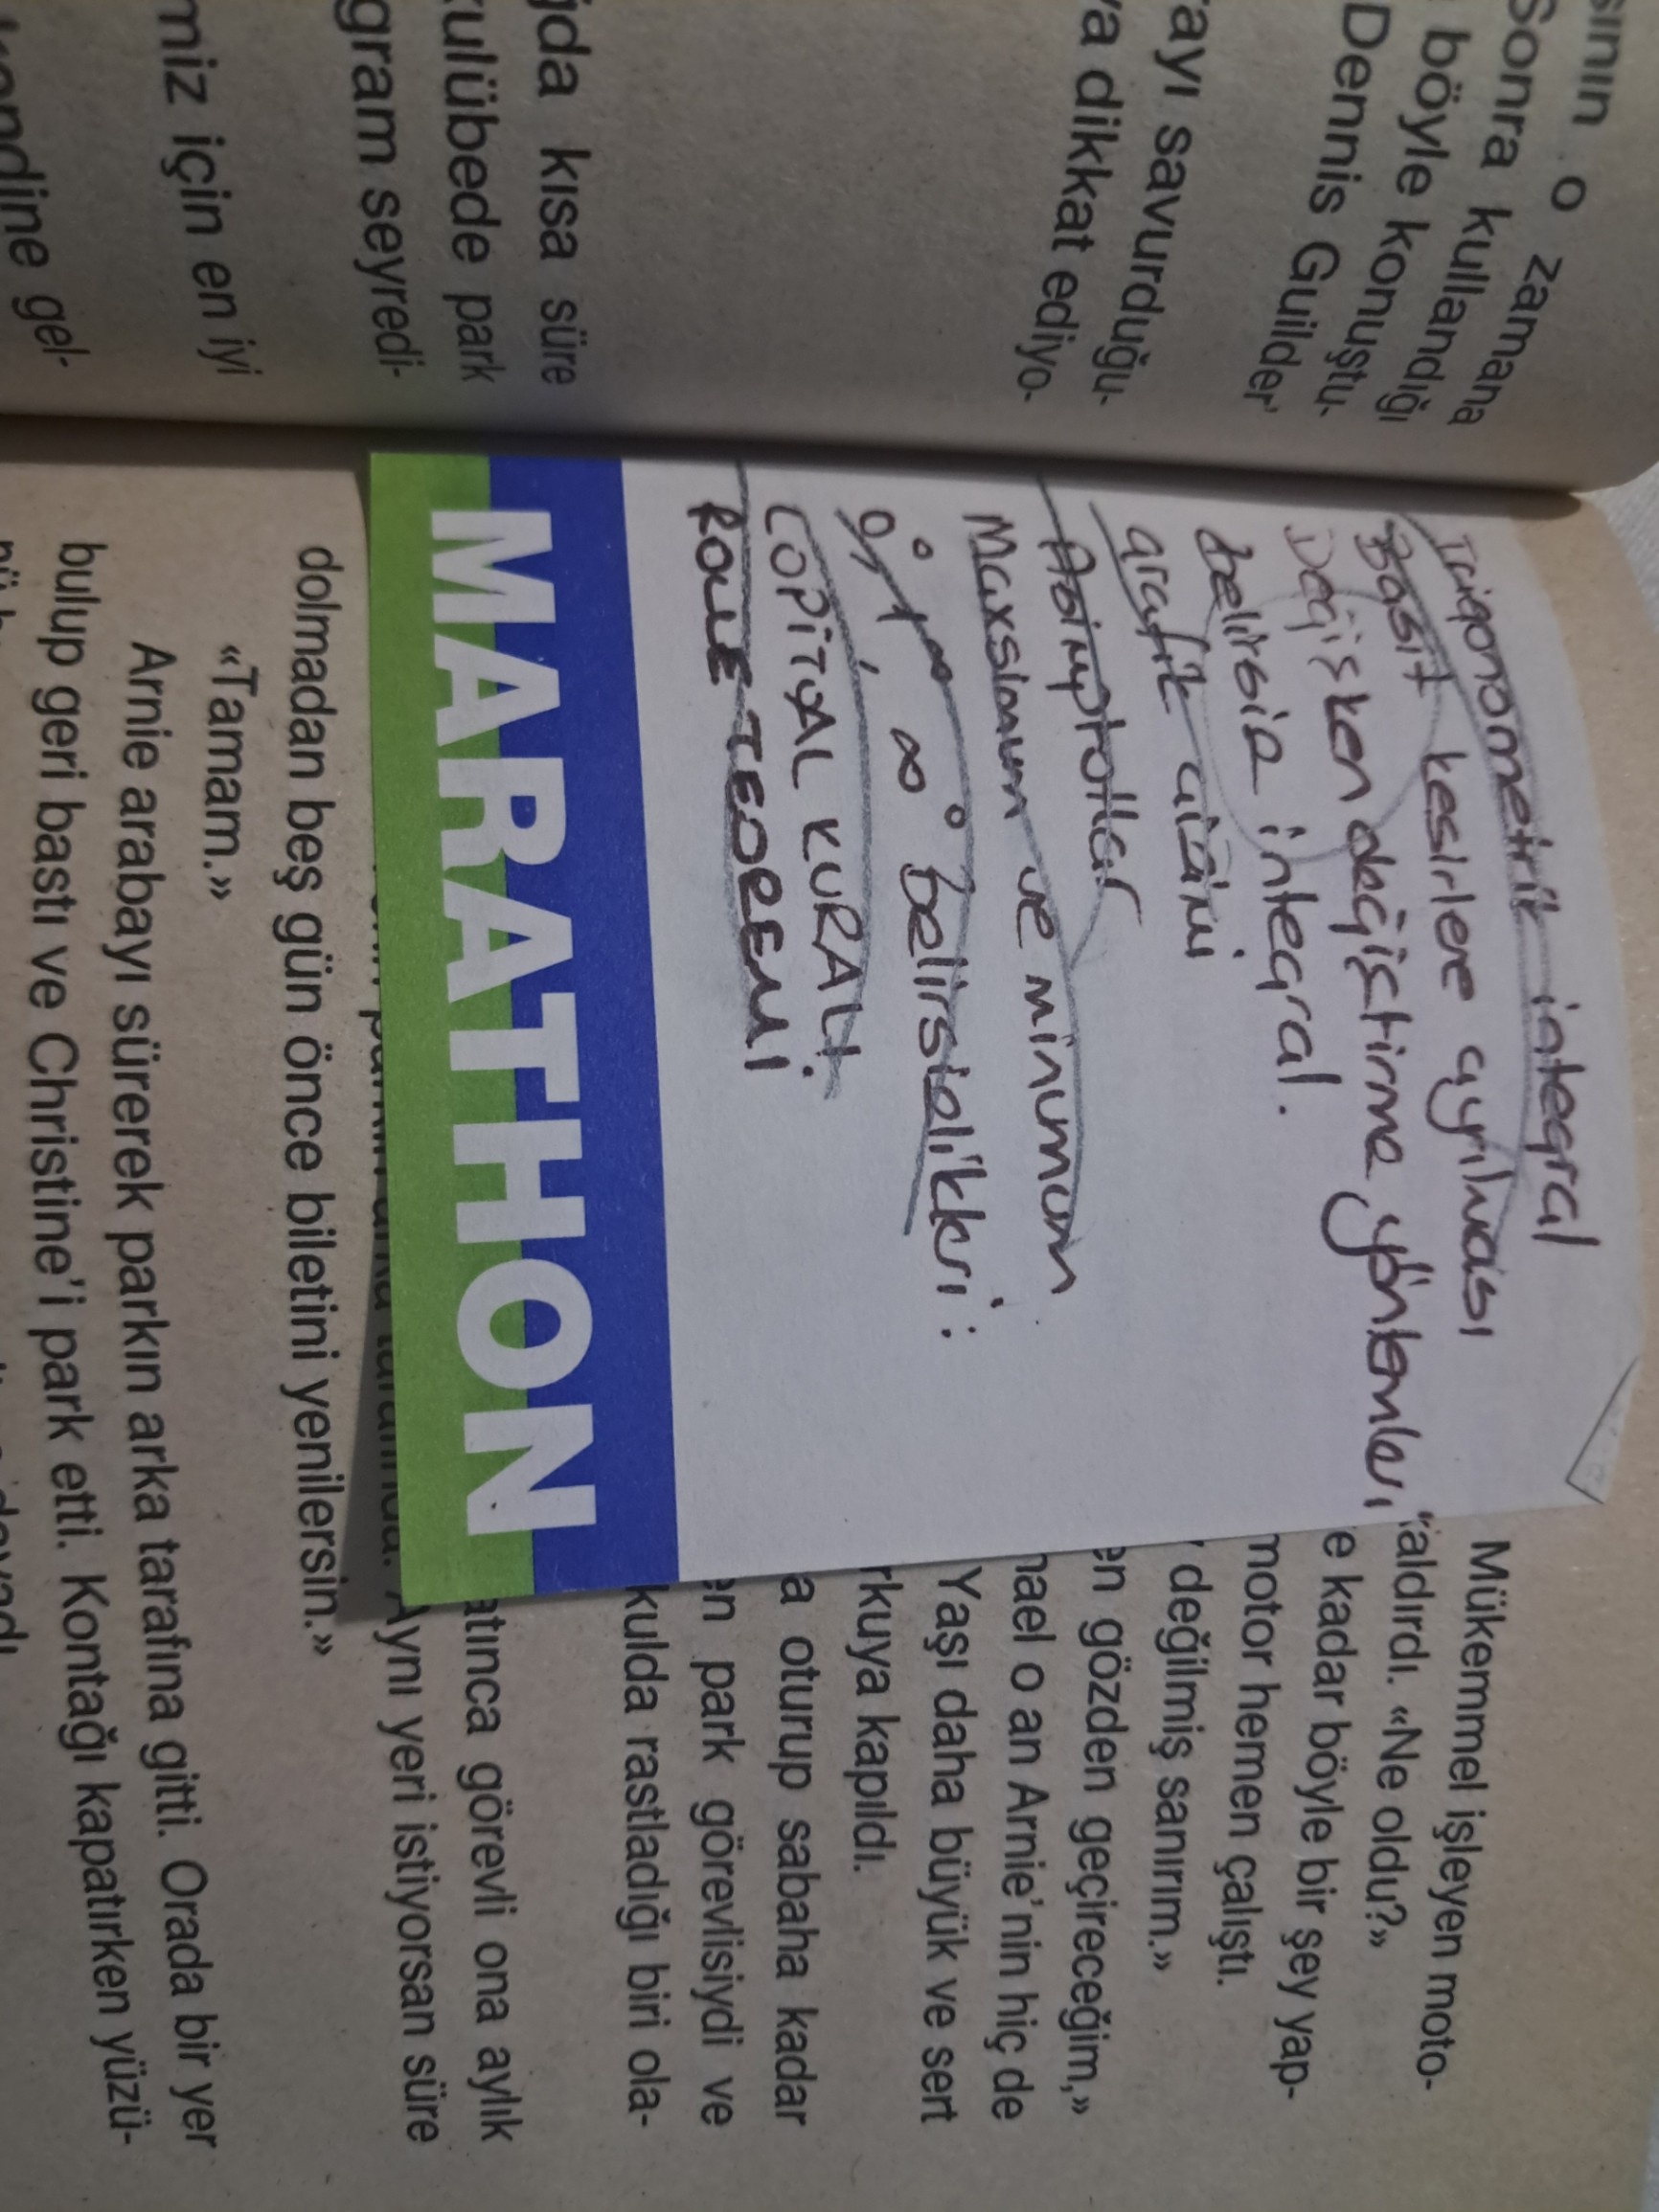 sının o zaman
Sonra kullanana
böyle konuştu-
Dennis Guilder'
ayı savurduğu-
a dikkat ediyo-
jda kısa süre
kulübede park
gram seyredi-
miz için en iyi
kendine gel-
Trigonometrik integral
Basit kesirlere ayrılması
Değişken değiştirme yöntemleri
belirsiz integral.
grafik çizimi
Asimptotlar
Maxsimum ve minumum
belirsizlikleri:
LOPİTAL KURALI
ROLLE TEOREMİ
MARATHON
Mükemmel işleyen moto-
aldırdı. «Ne oldu?»
e kadar böyle bir şey yap-
motor hemen çalıştı.
değilmiş sanırım.»
en gözden geçireceğim,»
hael o an Arnie'nin hiç de
Yaşı daha büyük ve sert
rkuya kapıldı.
a oturup sabaha kadar
en park görevlisiydi ve
kulda rastladığı biri ola-
atınca görevli ona aylık
Aynı yeri istiyorsan süre
dolmadan beş gün önce biletini yenilersin.»
«Tamam.»
Arnie arabayı sürerek parkın arka tarafına gitti. Orada bir yer
bulup geri bastı ve Christine'i park etti. Kontağı kapatırken yüzü-